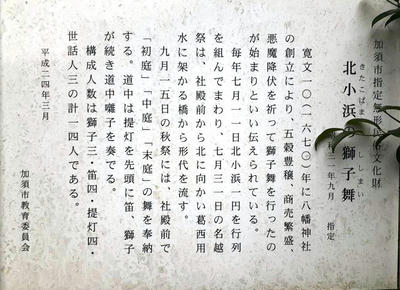 加須市指定無形 文化財
北小浜 獅子舞
きたこばま ししまい
二年九月 指定
寛文一〇(一六七〇)年に八幡神社
の創立により、五穀豊穣、商売繁盛、
悪魔降伏を祈って獅子舞を行ったの
が始まりといい伝えられている。
毎年七月一一日北小浜一円を行列
を組んでまわり、七月三一日の名越
祭は、社殿前から北に向かい葛西用
水に架かる橋から形代を流す。
九月一五日の秋祭には、社殿前で
「初庭」「中庭」「末庭」の舞を奉納
する。道中は提灯を先頭に笛、獅子
が続き道中囃子を奏でる。
構成人数は獅子三・笛四・提灯四・
世話人三の計一四人である。
平成二四年三月
加須市教育委員会